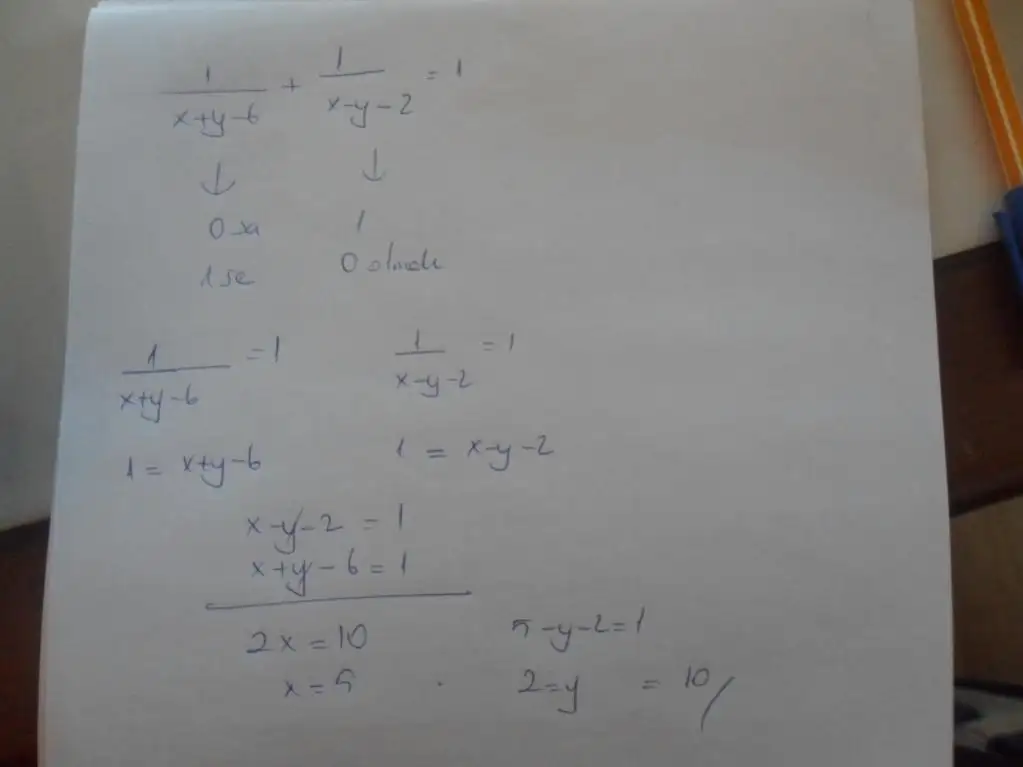 1/(x+y-6) + 1/(x-y-2) = 1
↓ ↓
0 sa 1
1 se 0 olmalı
1/(x+y-6) = 1 1/(x-y-2) = 1
1 = x+y-6 1 = x-y-2
x-y-2 = 1
x+y-6 = 1
2x = 10 5-y-2=1
x = 5 . 2=y = 10/